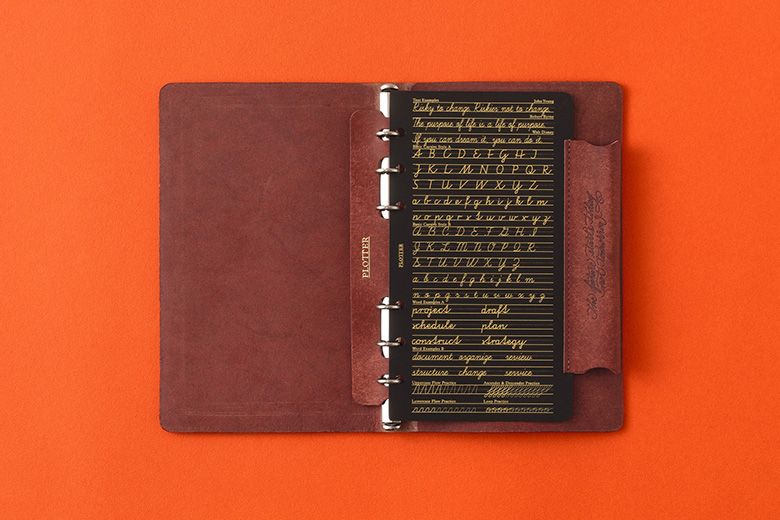 PLOTTER
PLOTTER
Text Examples John Young
Risky to change. Riskier not to change.
Robert Byrne
The purpose of life is a life of purpose.
Walt Disney
If you can dream it, you can do it.
Basic Cursive Style A
A B C D E F G H I
J K L M N O P Q R
S T U V W X Y Z
a b c d e f g h i j k l m
n o p q r s t u v w x y z
Basic Cursive Style B
A B C D E F G H I
J K L M N O P Q R
S T U V W X Y Z
a b c d e f g h i j k l m
n o p q r s t u v w x y z
Word Examples A
project draft
schedule plan
construct strategy
Word Examples B
document organize review
structure change service
Uppercase Flow Practice Ascender & Descender Practice
Lowercase Flow Practice Loop Practice